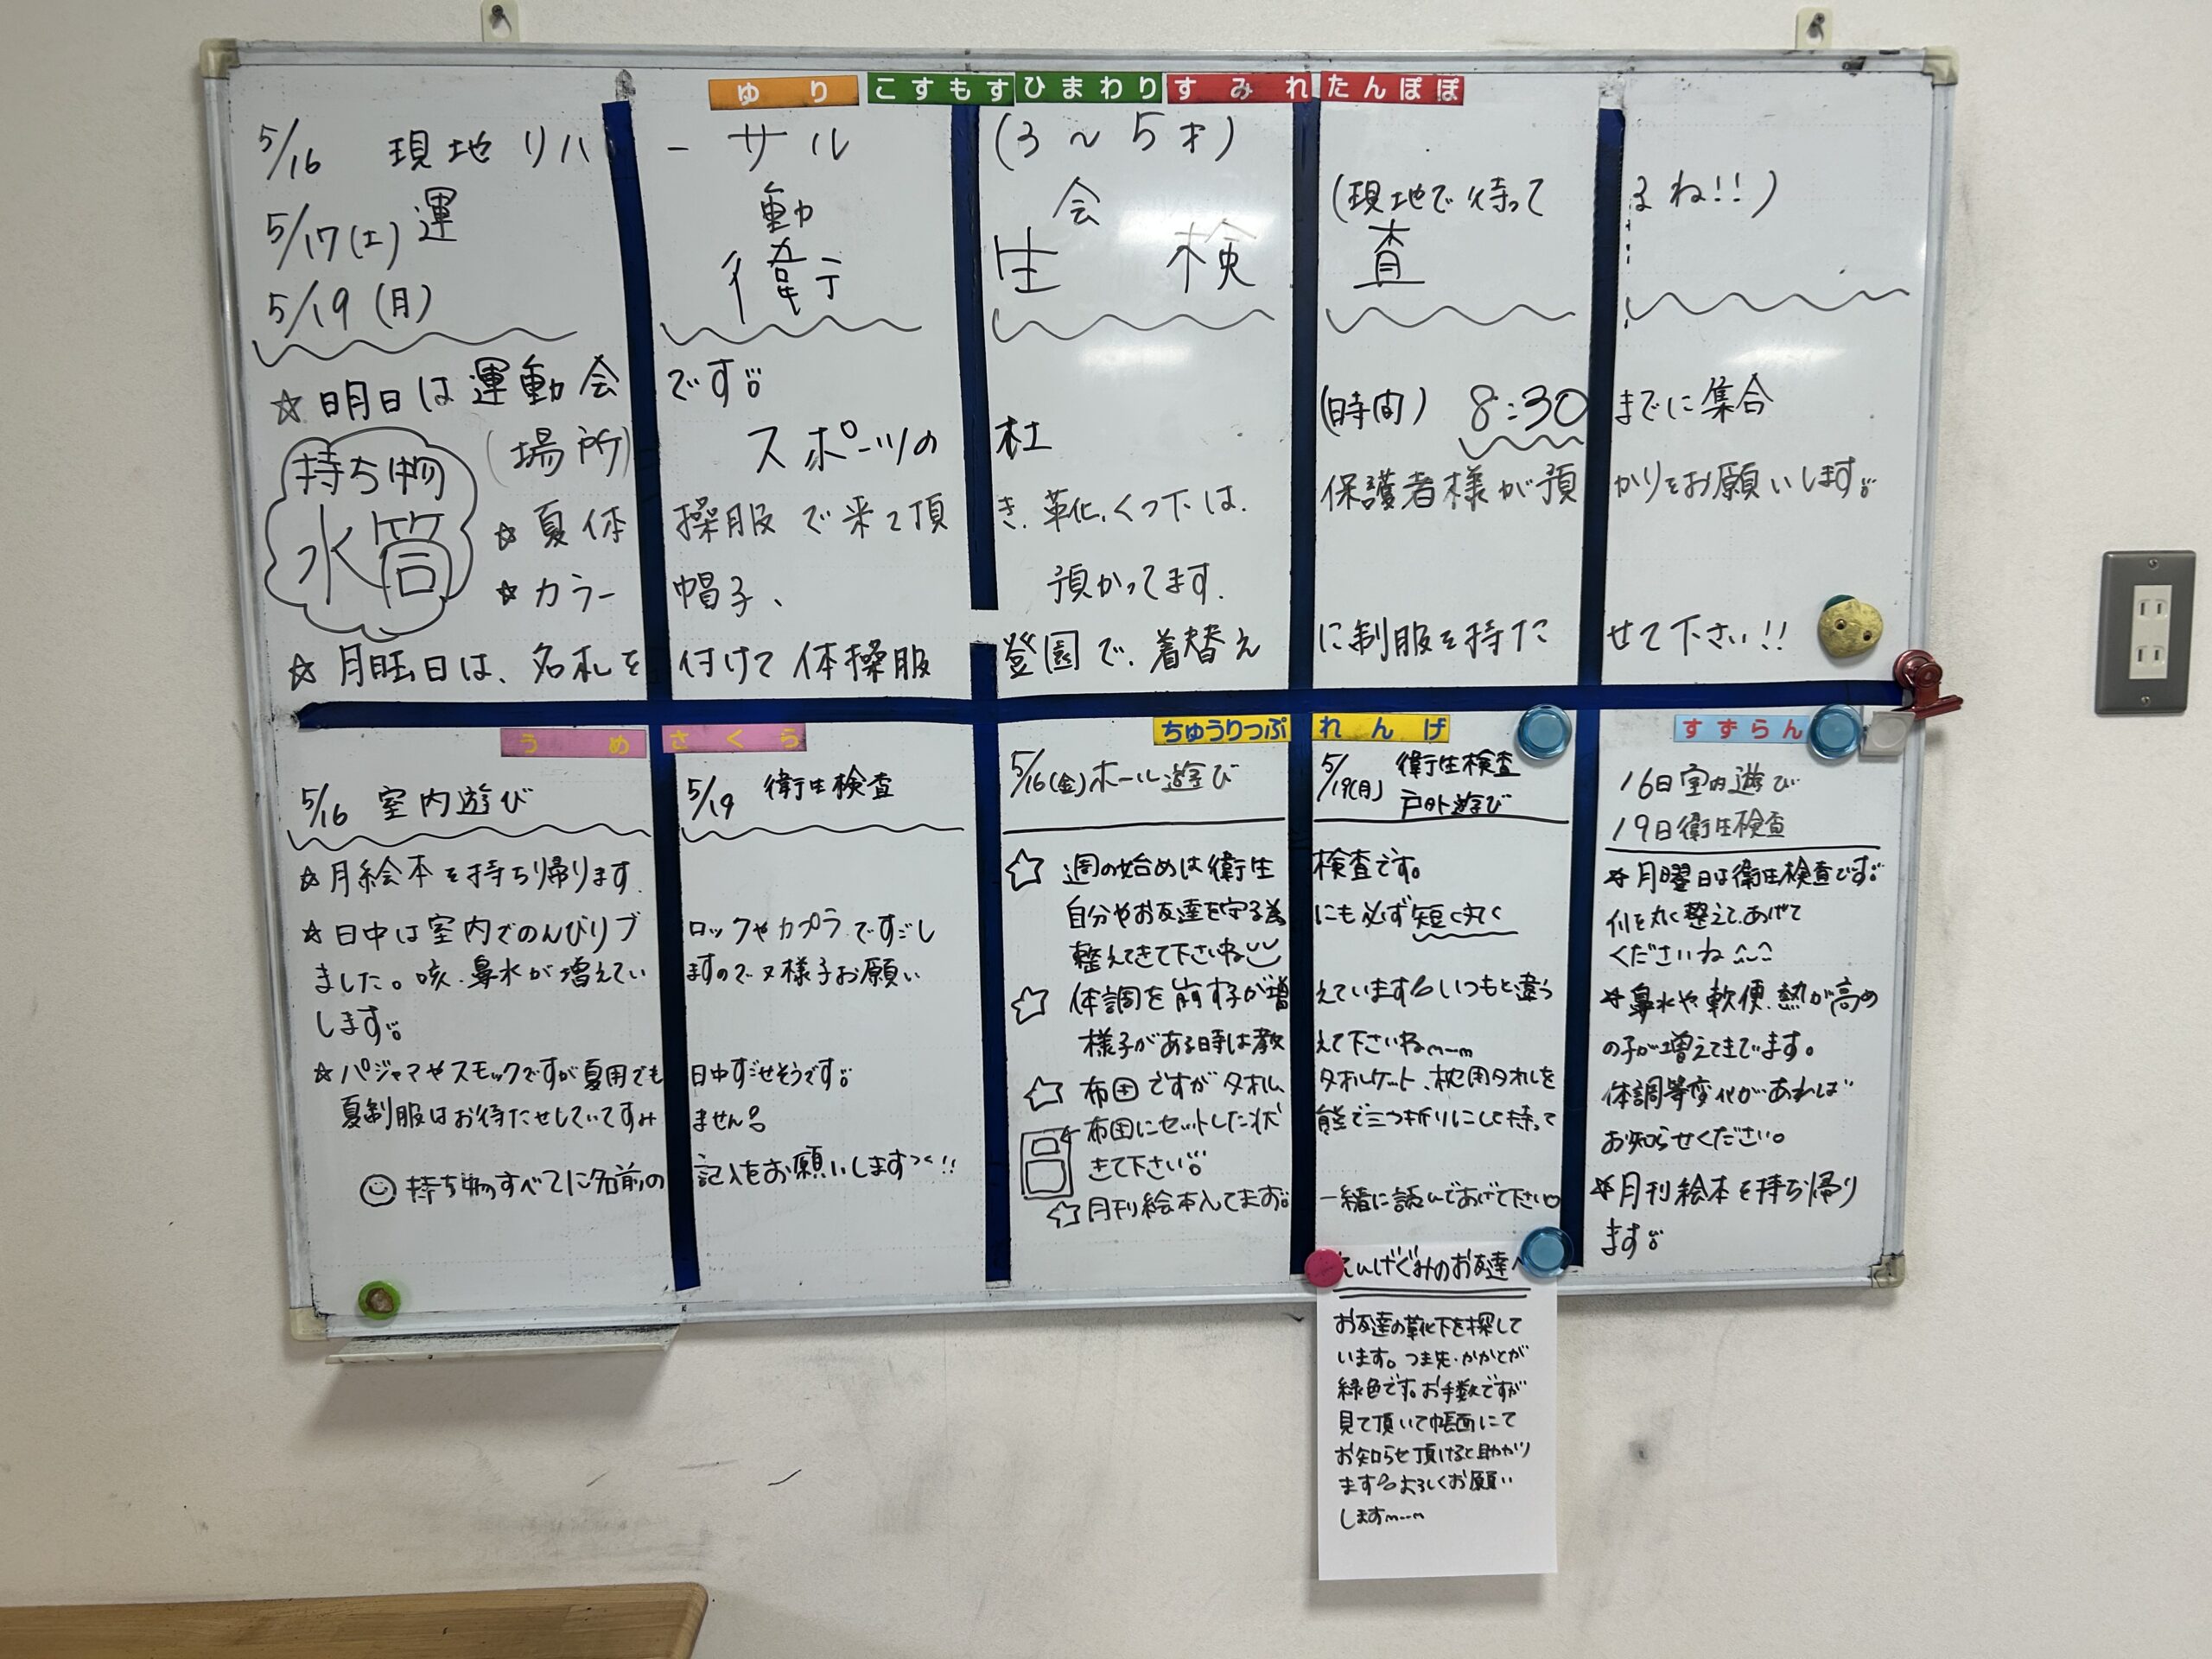 ゆり こすもす ひまわり すみれ たんぽぽ
5/16 現地リハーサル (3〜5才)
5/17(土) 運動会 (現地で待ってるね!!)
5/19(月) 衛生検査
☆明日は運動会です。
(場所) スポーツの杜 (時間) 8:30 までに集合
持ち物
水筒
☆夏体操服で来て頂き、靴、くつ下は、保護者様が預かりをお願いします。
☆カラー帽子、預かってます。
☆月曜日は、名札を付けて体操服登園で、着替えに制服を持たせて下さい!!
うめ さくら
5/16 室内遊び 5/19 衛生検査
☆月絵本を持ち帰ります
☆日中は室内でのんびりブロックやカプラですごし
ました。咳、鼻水が増えていますので又様子お願い
します。
☆パジャマやスモックですが夏用でも日中すごせそうです。
夏制服はお待たせしていてすみません
持ち物すべてに名前の記入をお願いします!!
ちゅうりっぷ れんげ
5/16(金) ホール遊び 5/19(月) 衛生検査
戸外遊び
☆週の始めは衛生検査です。
自分やお友達を守る為にも必ず短く丸く
整えてきて下さいね
☆体調を崩す子が増えています いつもと違う
様子がある時は教えて下さいねm--m
☆布団ですがタオル、タオルケット、枕用タオルを
布団にセットした状態で三つ折りにして持って
きて下さい。
☆月刊絵本入ってます。一緒に読んであげて下さい♡
すずらん
16日室内遊び
19日衛生検査
☆月曜日は衛生検査です。
爪を丸く整えてあげて
くださいね
☆鼻水や軟便、熱が高め
の子が増えてきてます。
体調等変化があれば
お知らせください。
☆月刊絵本を持ち帰り
ます。
れんげぐみのお友達へ
お友達の靴下を探して
います。つま先・かかとが
緑色です。お手数ですが
見て頂いて帳面にて
お知らせ頂けると助かり
ます よろしくお願い
しますm--m